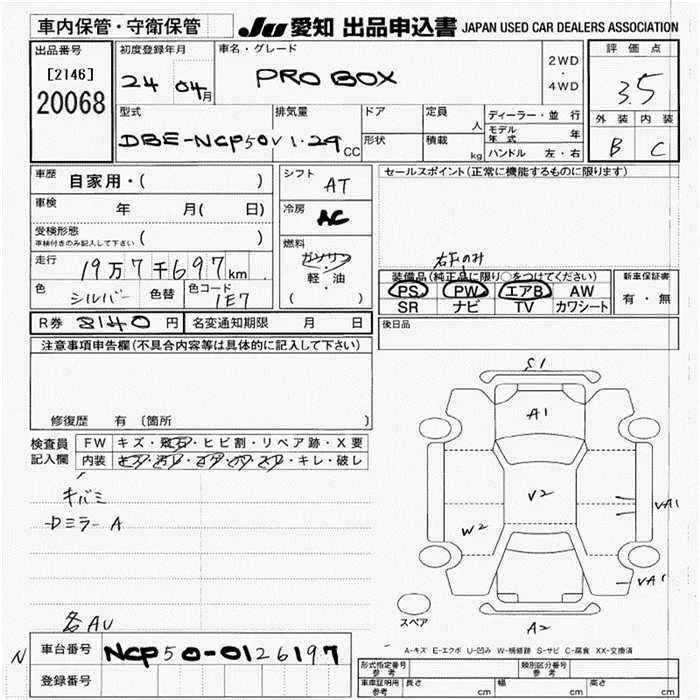 車内保管・守衛保管
JU 愛知 出品申込書 JAPAN USED CAR DEALERS ASSOCIATION
出品番号
[2146]
20068
初度登録年月
24 04月
車名・グレード
PRO BOX
2WD
・
4WD
評価点
3.5
型式
DBE-NCP50V
排気量
1.29
CC
ドア
形状
定員
人
積載
kg
ディーラー・並行
モデル年式 年
ハンドル 左・右
外装 内装
B C
車歴
自家用・( )
車検
年 月( 日)
受検形態
車検付きのみ記入して下さい ( )
走行
19万7千697km
色
シルバー
色替
色コード
1E7
シフト
AT
冷房
AC
燃料
ガソリン
・
軽・油
( )
セールスポイント(正常に機能するものに限ります)
右下のみ
装備品(純正品に限り○をつけてください)
PS PW エアB AW
SR ナビ TV カワシート
新車保証書
有・無
R券 8140 円 名変通知期限 月 日
後日品
注意事項申告欄(不具合内容等は具体的に記入して下さい)
修復歴 有 〔箇所 〕
検査員
記入欄
FW キズ・飛石・ヒビ割・リペア跡・X要
内装 キズ・汚レ・コゲ・穴・スレ・キレ・破レ
キバミ
Dミラー A
各AU
S1
A1
V2
W2
VA1
VA1
A2
スペア
A-キズ E-エクボ U-凹み W-補修跡 S-サビ C-腐食 XX-交換済
N
車台番号
NCP50-0126197
登録番号
形式指定番号
参考
類別区分番号
参考
車庫証明用
参考
長さ cm 幅 cm 高さ cm